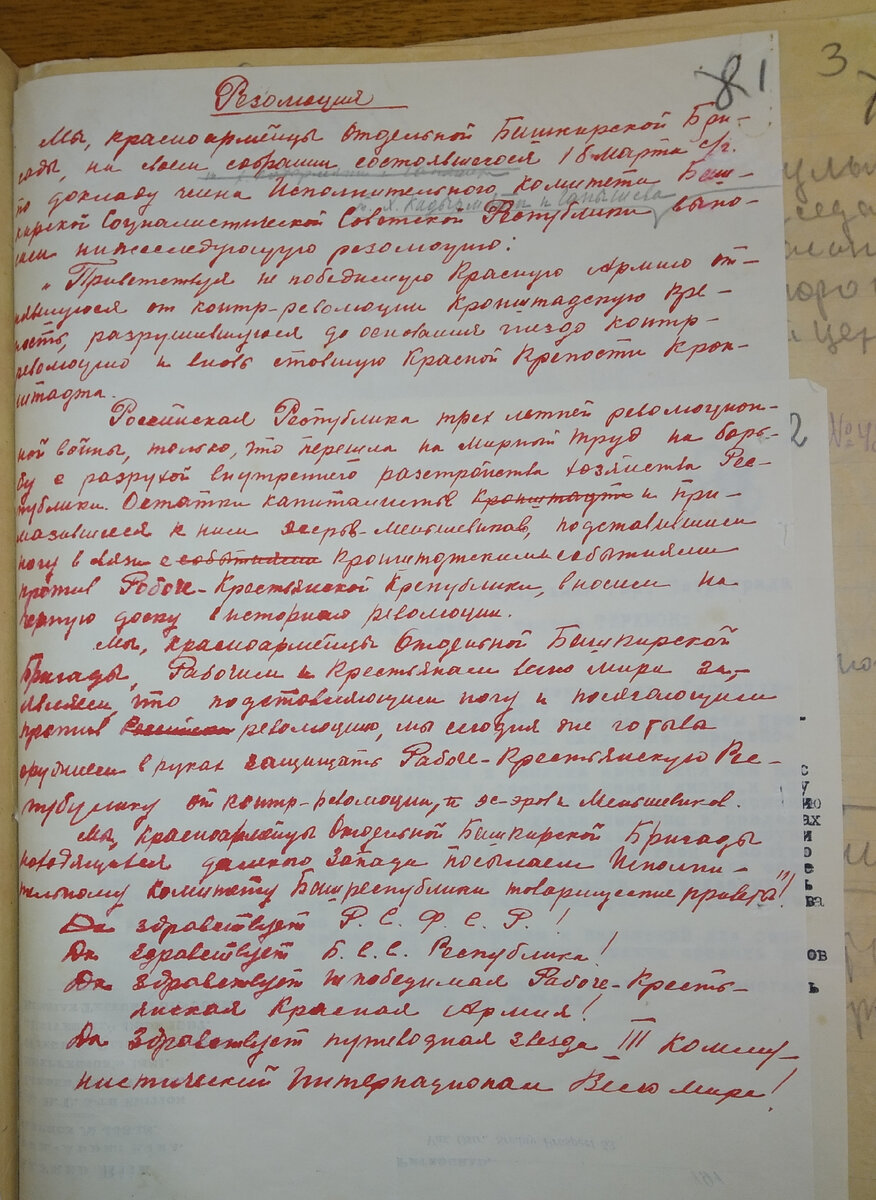 81
3
Резолюция
Мы, красноармейцы Отдельной Башкирской Бри-
гады, на своем собрании состоявшегося 18 марта с/г.
по докладу члена Исполнительного Комитета Баш-
т. Х. Кадырмаева и
кирской Социалистической Советской Республики выно-
сим нижеследующую резолюцию:
„Приветствуя не победимую Красную Армию от-
нявшуюся от контр-революции Кронштадскую кре-
пость, разрушившуюся до основания гнездо контр-
революцию и вновь ставшую Красной Крепости Крон-
штадта.
Российская Республика трех летней революцион-
ной войны, только, что перешла на мирный труд на борь-
бу с разрухой внутреннего разстройства хозяйства Рес-
публики. Остатки капиталистов Кронштадта и при-
мазавшиеся к ним эсеров-меньшевиков, подставившим
ногу в связи с событиями Кронштадскими событиями
против Рабоче-Крестьянской Республики, вносим на
черную доску в историю революции.
Мы, красноармейцы Отдельной Башкирской
Бригады, Рабочим и Крестьянам всего мира за,-
являем, что подставляющим ногу и посягающим
против Российск революцию, мы сегодня же готыва
оружием в руках защищать Рабоче-Крестьянскую Рес-
публику от контр-революции, и эс-эров и Меньшевиков.
Мы, красноармейцы Отдельной Башкирской Бригады
находящийся далекого Запада посылаем Исполни-
тельному Комитету Башреспублики товарищеские привета"!
Да здравствует Р.С.Ф.С.Р.!
Да здравствует Б.С.С. Республика!
Да здравствует не победимая Рабоче-Кресть-
янская Красная Армия!
Да здравствует путеводная звезда III Комму-
нистический Интернационал Всего мира!
2 №